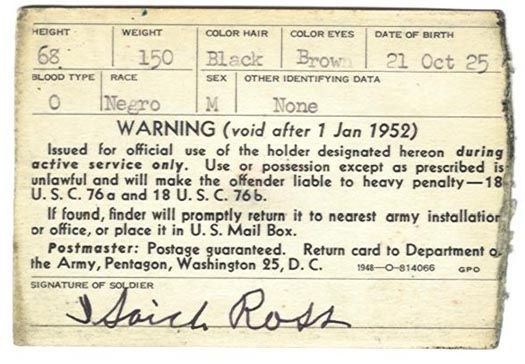 HEIGHT WEIGHT COLOR HAIR COLOR EYES DATE OF BIRTH
68 150 Black Brown 21 Oct 25
BLOOD TYPE RACE SEX OTHER IDENTIFYING DATA
O Negro M None
WARNING (void after 1 Jan 1952)
Issued for official use of the holder designated hereon during
active service only. Use or possession except as prescribed is
unlawful and will make the offender liable to heavy penalty—18
U. S. C. 76a and 18 U. S. C. 76b.
If found, finder will promptly return it to nearest army installation
or office, or place it in U. S. Mail Box.
Postmaster: Postage guaranteed. Return card to Department o
the Army, Pentagon, Washington 25, D. C. 1948—O-814066 GPO
SIGNATURE OF SOLDIER
Ross